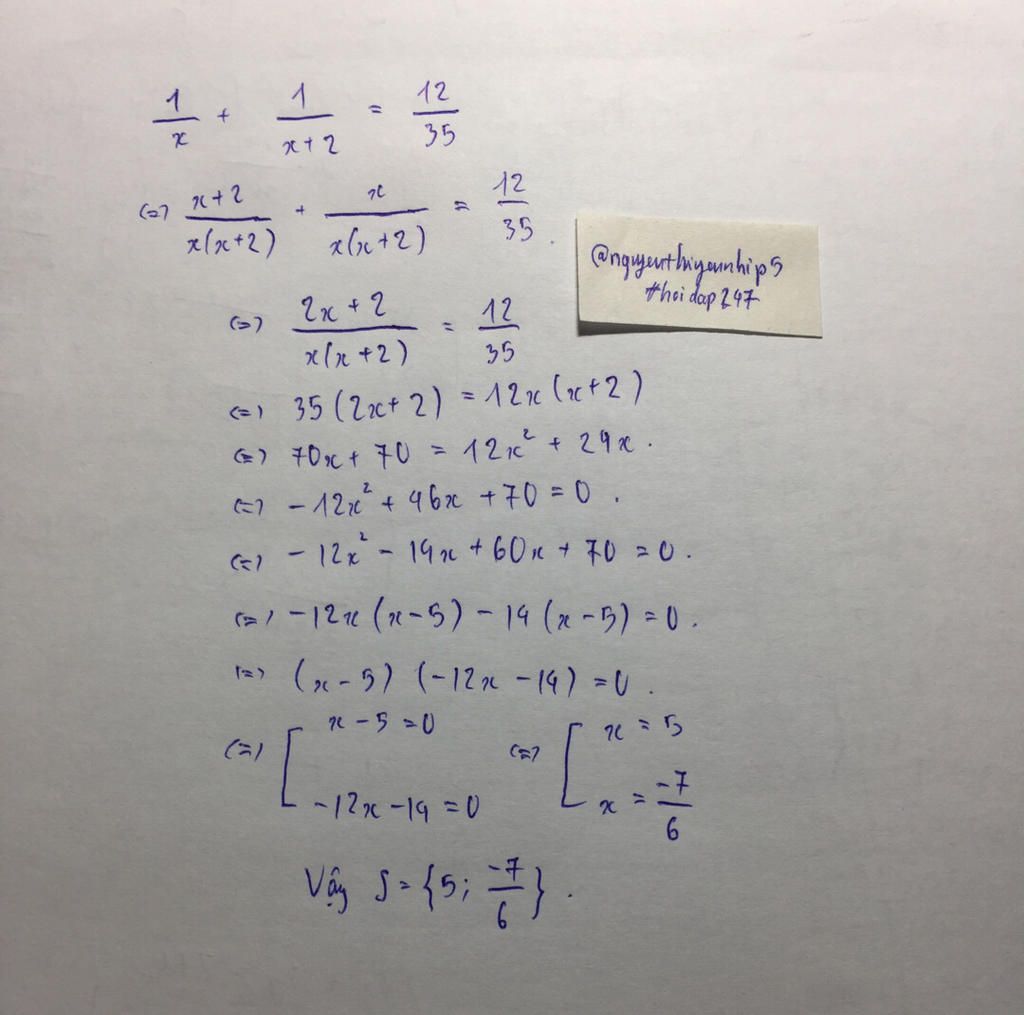 1/x + 1/(x+2) = 12/35
<=> (x+2)/(x(x+2)) + x/(x(x+2)) = 12/35.
@nguyenthiyennhip5
#hoidap247
<=> (2x+2)/(x(x+2)) = 12/35
<=> 35(2x+2) = 12x(x+2)
<=> 70x + 70 = 12x² + 24x.
<=> -12x² + 46x + 70 = 0.
<=> -12x² - 14x + 60x + 70 = 0.
<=> -12x(x-5) - 14(x-5) = 0.
<=> (x-5)(-12x-14) = 0.
<=> [ x-5 = 0 <=> [ x = 5
-12x-14 = 0 x = -7/6
Vậy S = {5; -7/6}.